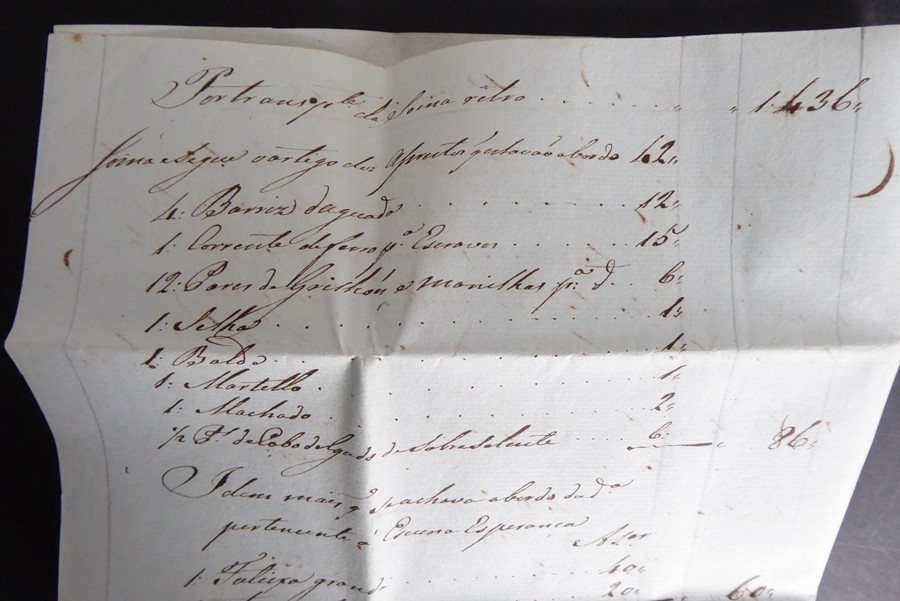 Portransp.te da Soma retro . . . . . . " " 1:436"
Soma e Segue o artigo dos aprestos q estavaõ abordo 42"
4: Barriz daguada . . . . . . . 12"
1: Corrente de ferro p.a Escravos . . . . 15"
12: Pares de Grilhões e manilhas p.a d. . . 6"
1: Selha . . . . . . . . . 1"
1: Balde . . . . . . . . . 1"
1: Martello . . . . . . . . 1"
1: Machado . . . . . . . . 2"
1/2 P.ª de Cabo delgado de Sobreselente . . . . 6: " 86"
Idem mais q se achava abordo da d.a
pertencente á Escuna Esperança
1: Faluxa grande . . . . . . 40"
20" 60"